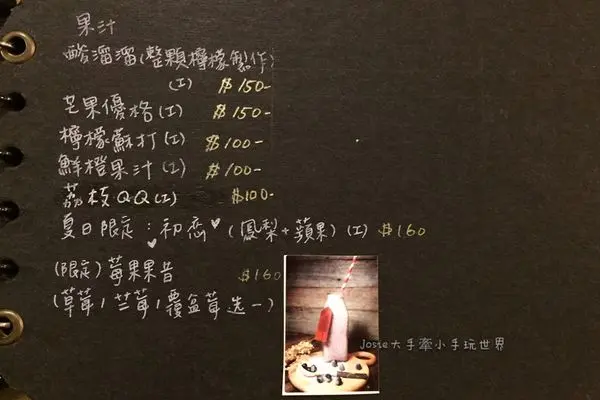 果汁
酸溜溜(整顆檸檬製作)
(I) $150-
芒果優格(I) $150-
檸檬蘇打(I) $100-
鮮橙果汁(I) $100-
荔枝QQ(I) $100-
夏日限定：初戀♥(鳳梨+蘋果)(I) $160
(限定)莓果果昔 $160
(草莓/兰莓/覆盆莓选一)
Josie大手牽小手玩世界